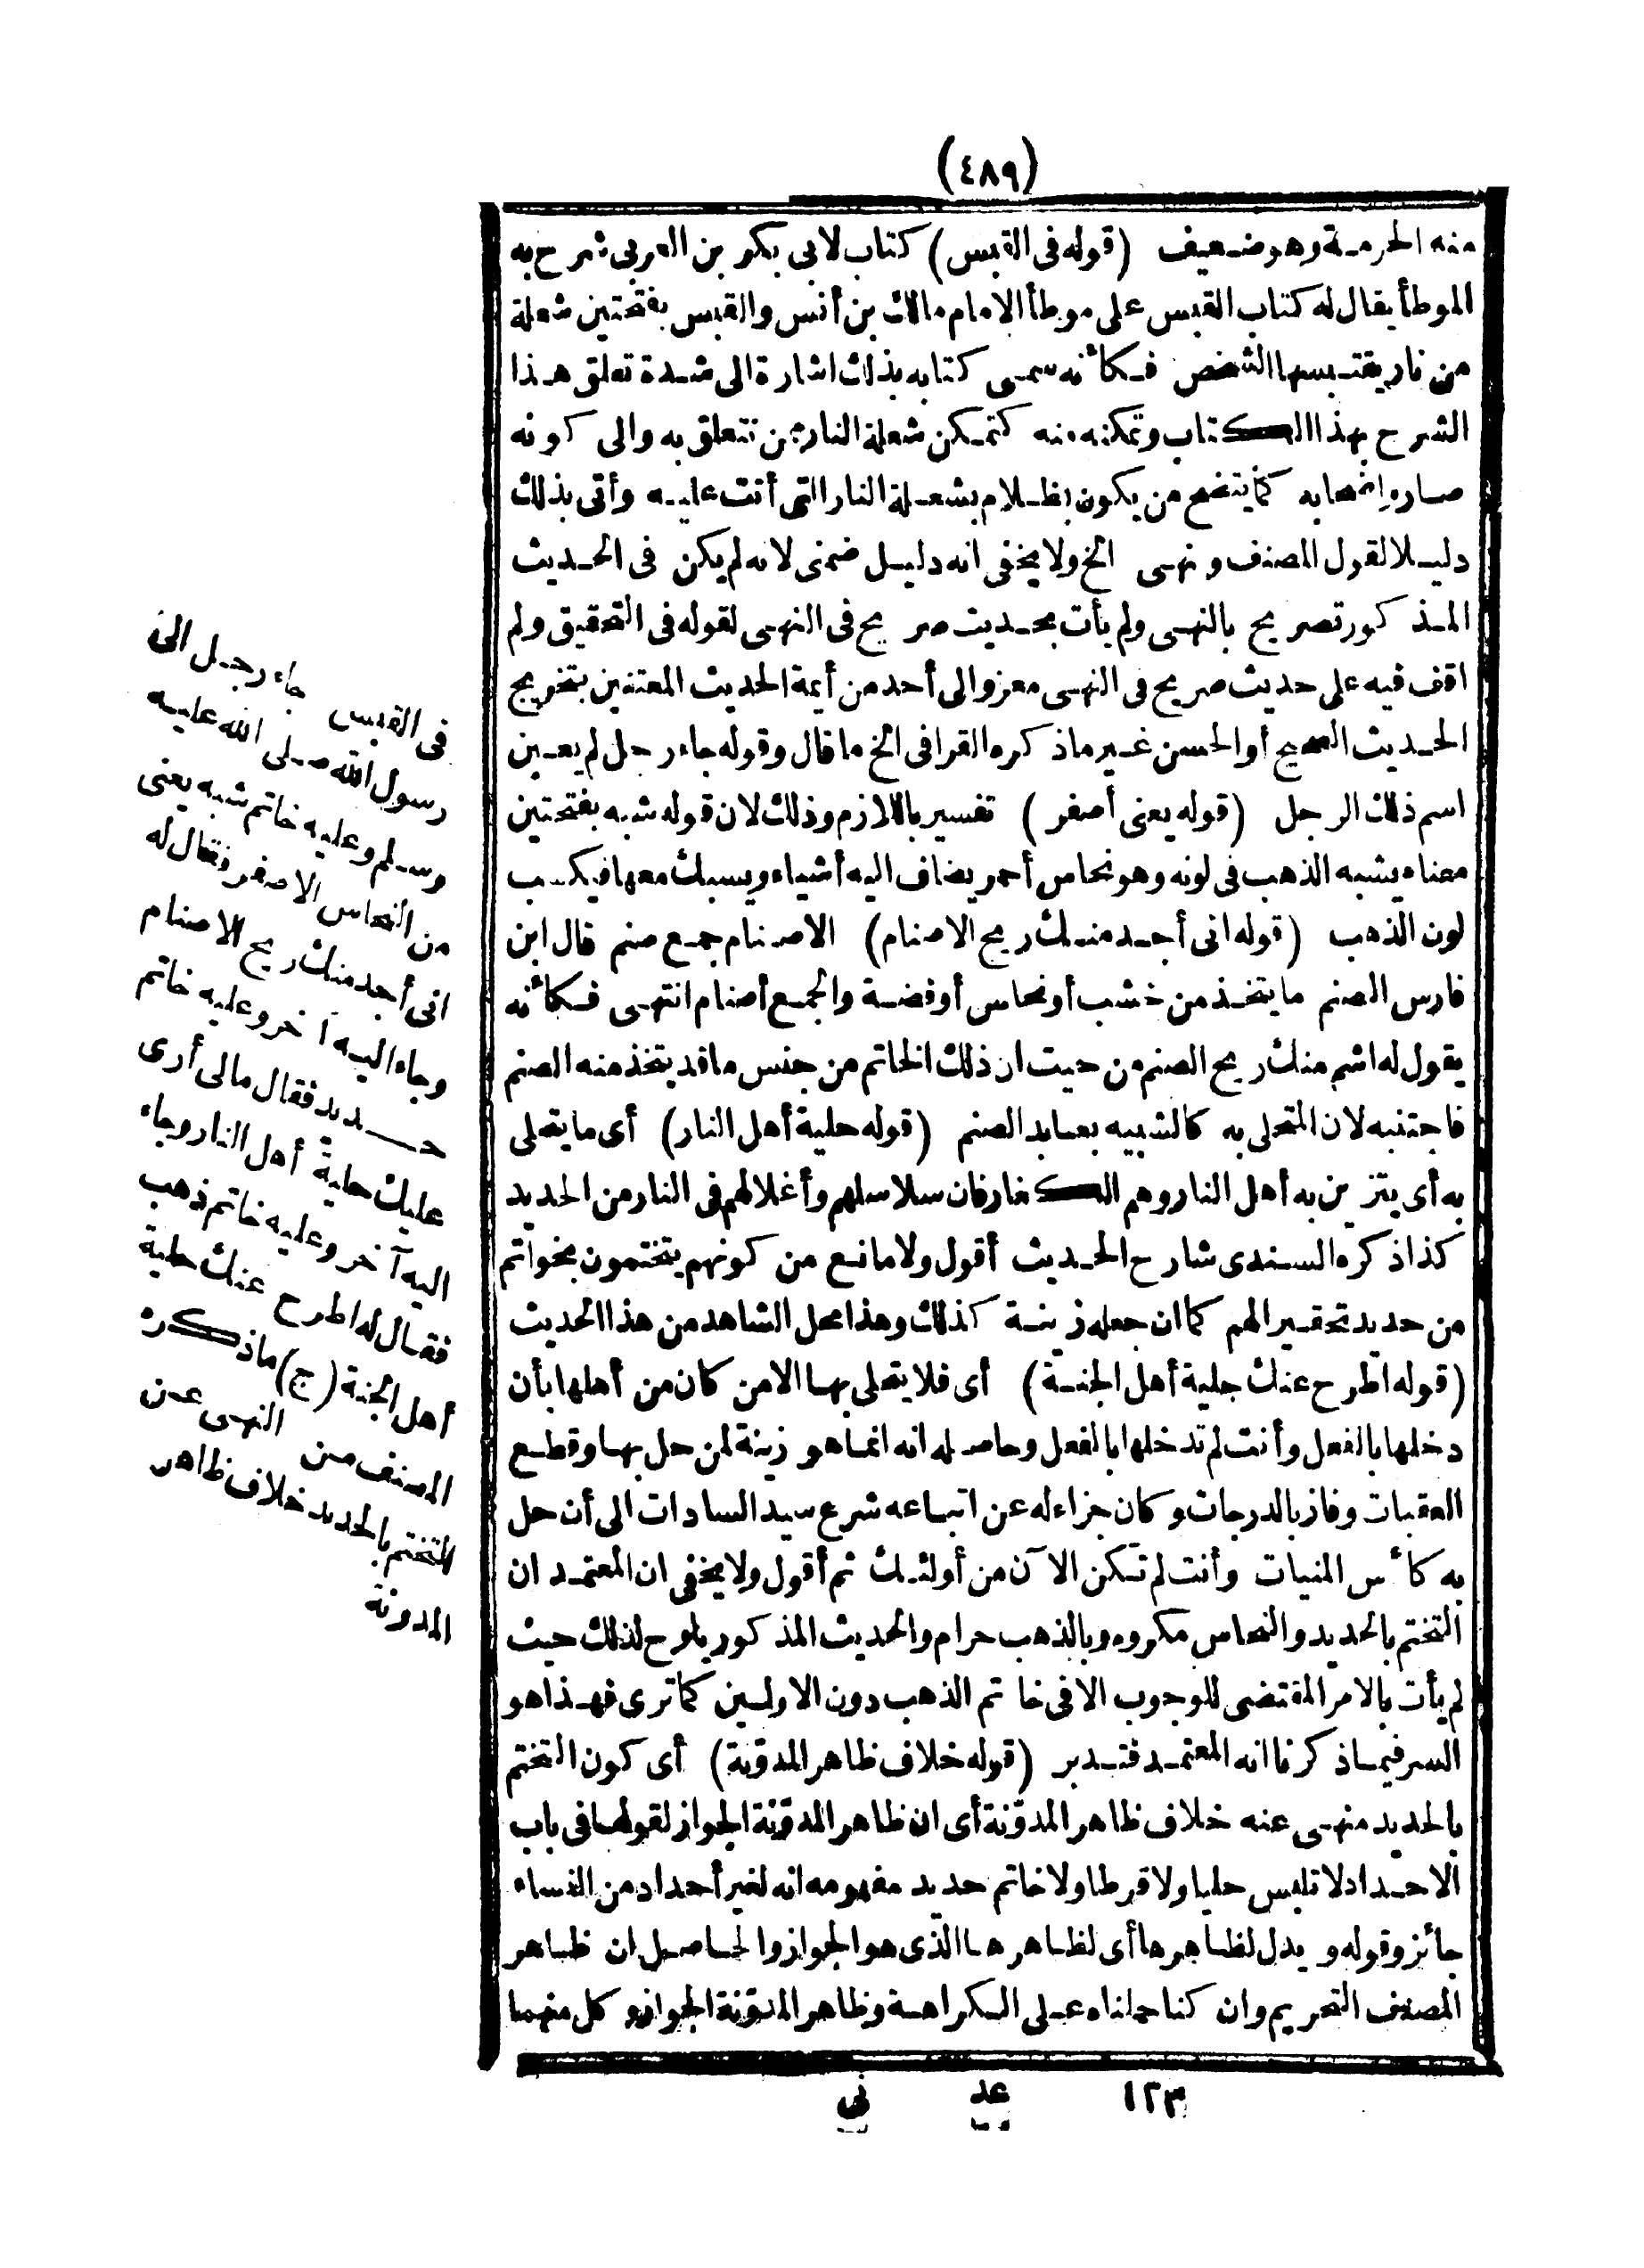 (٤٨٩)
منه الحرمة وهو ضعيف (قوله فى القبس) كتاب لابى بكر بن العربى شرح به
الموطأ يقال له كتاب القبس على موطأ الامام مالك بن أنس والقبس بفتحتين شعلة
من نار يقتبسها الشخص فكأنه سمى كتابه بذلك اشارة الى شدة تعلق هذا
الشرح بهذا الكتاب وتمكنه منه كتمكن شعلة النار بمن تتعلق به والى كونه
صار واضحا به كما يتضح من يكون بظلام بشعلة النار التى أنت عليه وأتى بذلك
دليلا لقول المصنف ونهى الخ ولا يخفى انه دليل ضمنى لانه لم يكن فى الحديث
المذكور تصريح بالنهى ولم يأت بحديث صريح فى النهى لقوله فى التحقيق ولم
اقف فيه على حديث صريح فى النهى معزو الى أحد من أيمة الحديث المعتنين بتخريج
الحديث الصحيح أو الحسن غير ماذكره القرافى الخ ما قال وقوله جاء رجل لم يعين
اسم ذلك الرجل (قوله يعنى أصفر) تفسير باللازم وذلك لان قوله شبه بفتحتين
معناه يشبه الذهب فى لونه وهو نحاس أحمر يضاف اليه أشياء ويسبك معها فيكسب
لون الذهب (قوله انى أجد منك ريح الاصنام) الاصنام جمع صنم قال ابن
فارس الصنم ما يتخذ من خشب أو نحاس أو فضة والجمع أصنام انتهى فكأنه
يقول له اشم منك ريح الصنم من حيث ان ذلك الخاتم من جنس ما قد يتخذ منه الصنم
فاجتنبه لان المتحلى به كالشبيه بعابد الصنم (قوله حلية أهل النار) أى ما يتحلى
به أى يتزين به أهل النار وهم الكفار فان سلاسلهم وأغلالهم فى النار من الحديد
كذا ذكره السندى شارح الحديث أقول ولا مانع من كونهم يتختمون بخواتم
من حديد تحقيرا لهم كما ان جعله زينة كذلك وهذا محل الشاهد من هذا الحديث
(قوله اطرح عنك حلية أهل الجنة) أى فلا يتحلى بها الا من كان من أهلها بأن
دخلها بالفعل وأنت لم تدخلها بالفعل وحاصله انه انما هو زينة لمن حل بها وقطع
العقبات وفاز بالدرجات وكان جزاء له عن اتباعه شرع سيد السادات الى أن حل
به كأس المنيات وأنت لم تكن الآن من أولئك ثم أقول ولا يخفى ان المعتمد ان
التختم بالحديد والنحاس مكروه وبالذهب حرام والحديث المذكور يلوح لذلك حيث
لم يأت بالامر المقتضى للوجوب الا فى خاتم الذهب دون الاولين كما ترى فهذا هو
السر فيما ذكرنا انه المعتمد فتدبر (قوله خلاف ظاهر المدوّنة) أى كون التختم
بالحديد منهى عنه خلاف ظاهر المدوّنة أى ان ظاهر المدوّنة الجواز لقولها فى باب
الاحداد لا تلبس حليا ولا قرطا ولا خاتم حديد مفهومه انه لغير أحداد من النساء
جائز وقوله ويدل لظاهرها أى لظاهرها الذى هو الجواز والحاصل ان ظاهر
المصنف التحريم وان كنا حملناه على الكراهة وظاهر المدوّنة الجواز وكل منهما
فى القبس جاء رجل الى
رسول الله صلى الله عليه
وسلم وعليه خاتم شبه يعنى
من النحاس الاصفر فقال له
انى أجد منك ريح الاصنام
وجاء اليه آخر وعليه خاتم
حديد فقال مالى أرى
عليك حلية أهل النار وجاء
اليه آخر وعليه خاتم ذهب
فقال له اطرح عنك حلية
أهل الجنة (ج) ماذكره
المصنف من النهى عن
التختم بالحديد خلاف ظاهر
المدونة
١٢٣ عد نى